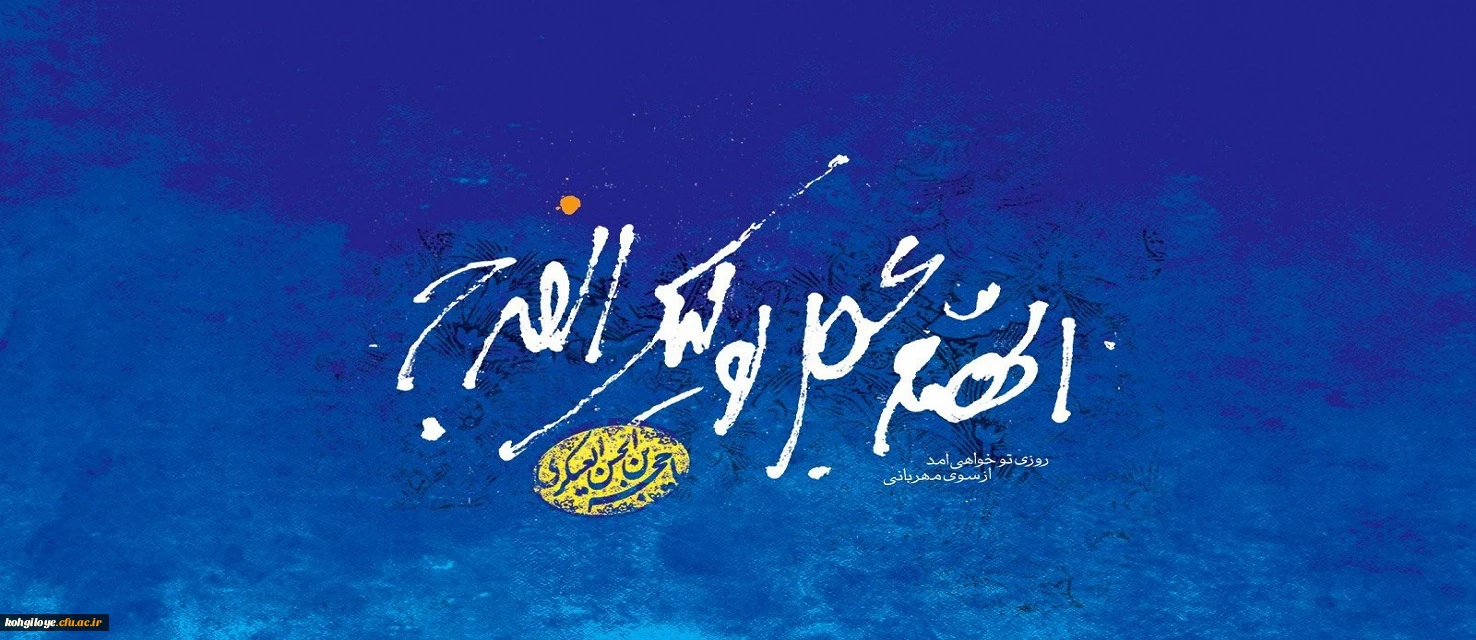 اللّهم عجل لولیک الفرج
حجة بن الحسن العسکری
روزی تو خواهی آمد
از سوی مهربانی
kohgiloye.cfu.ac.ir